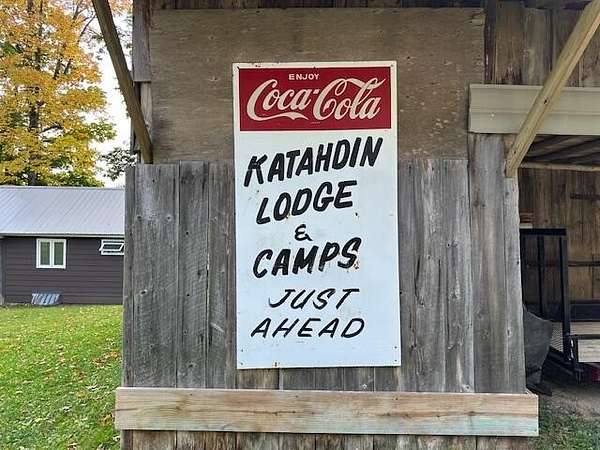 ENJOY
Coca-Cola
KATAHDIN
LODGE
&
CAMPS
JUST
AHEAD